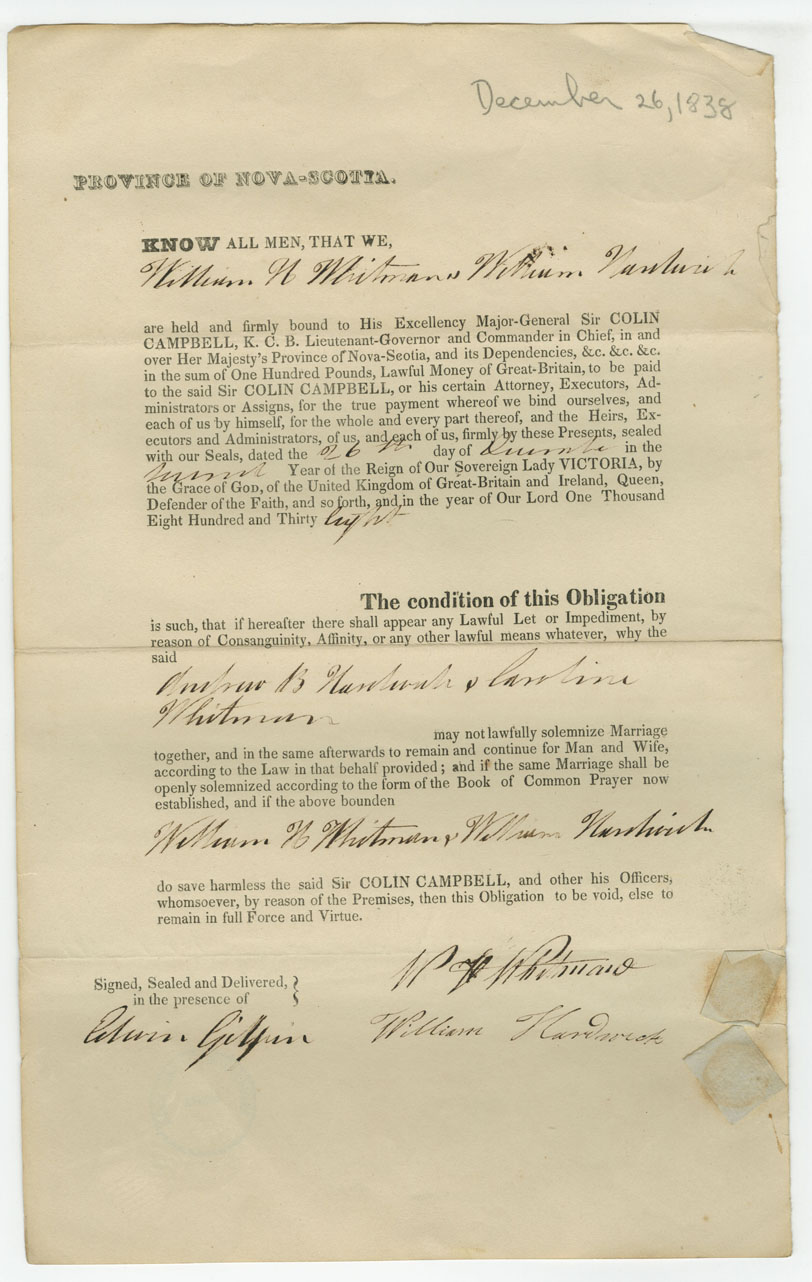 December 26, 1838
PROVINCE OF NOVA-SCOTIA.
KNOW ALL MEN, THAT WE,
William H Whitman & William Hardwick
are held and firmly bound to His Excellency Major-General Sir COLIN
CAMPBELL, K. C. B. Lieutenant-Governor and Commander in Chief, in and
over Her Majesty's Province of Nova-Scotia, and its Dependencies, &c. &c. &c.
in the sum of One Hundred Pounds, Lawful Money of Great-Britain, to be paid
to the said Sir COLIN CAMPBELL, or his certain Attorney, Executors, Ad-
ministrators or Assigns, for the true payment whereof we bind ourselves, and
each of us by himself, for the whole and every part thereof, and the Heirs, Ex-
ecutors and Administrators, of us, and each of us, firmly by these Presents, sealed
with our Seals, dated the 26th day of December in the
second Year of the Reign of Our Sovereign Lady VICTORIA, by
the Grace of GOD, of the United Kingdom of Great-Britain and Ireland, Queen,
Defender of the Faith, and so forth, and in the year of Our Lord One Thousand
Eight Hundred and Thirty eight
The condition of this Obligation
is such, that if hereafter there shall appear any Lawful Let or Impediment, by
reason of Consanguinity, Affinity, or any other lawful means whatever, why the
said
Andrew B Hardwick & Caroline
Whitman
may not lawfully solemnize Marriage
together, and in the same afterwards to remain and continue for Man and Wife,
according to the Law in that behalf provided; and if the same Marriage shall be
openly solemnized according to the form of the Book of Common Prayer now
established, and if the above bounden
William H Whitman & William Hardwick
do save harmless the said Sir COLIN CAMPBELL, and other his Officers,
whomsoever, by reason of the Premises, then this Obligation to be void, else to
remain in full Force and Virtue.
Signed, Sealed and Delivered,
in the presence of
W H Whitman
Edwin Gilpin
William Hardwick